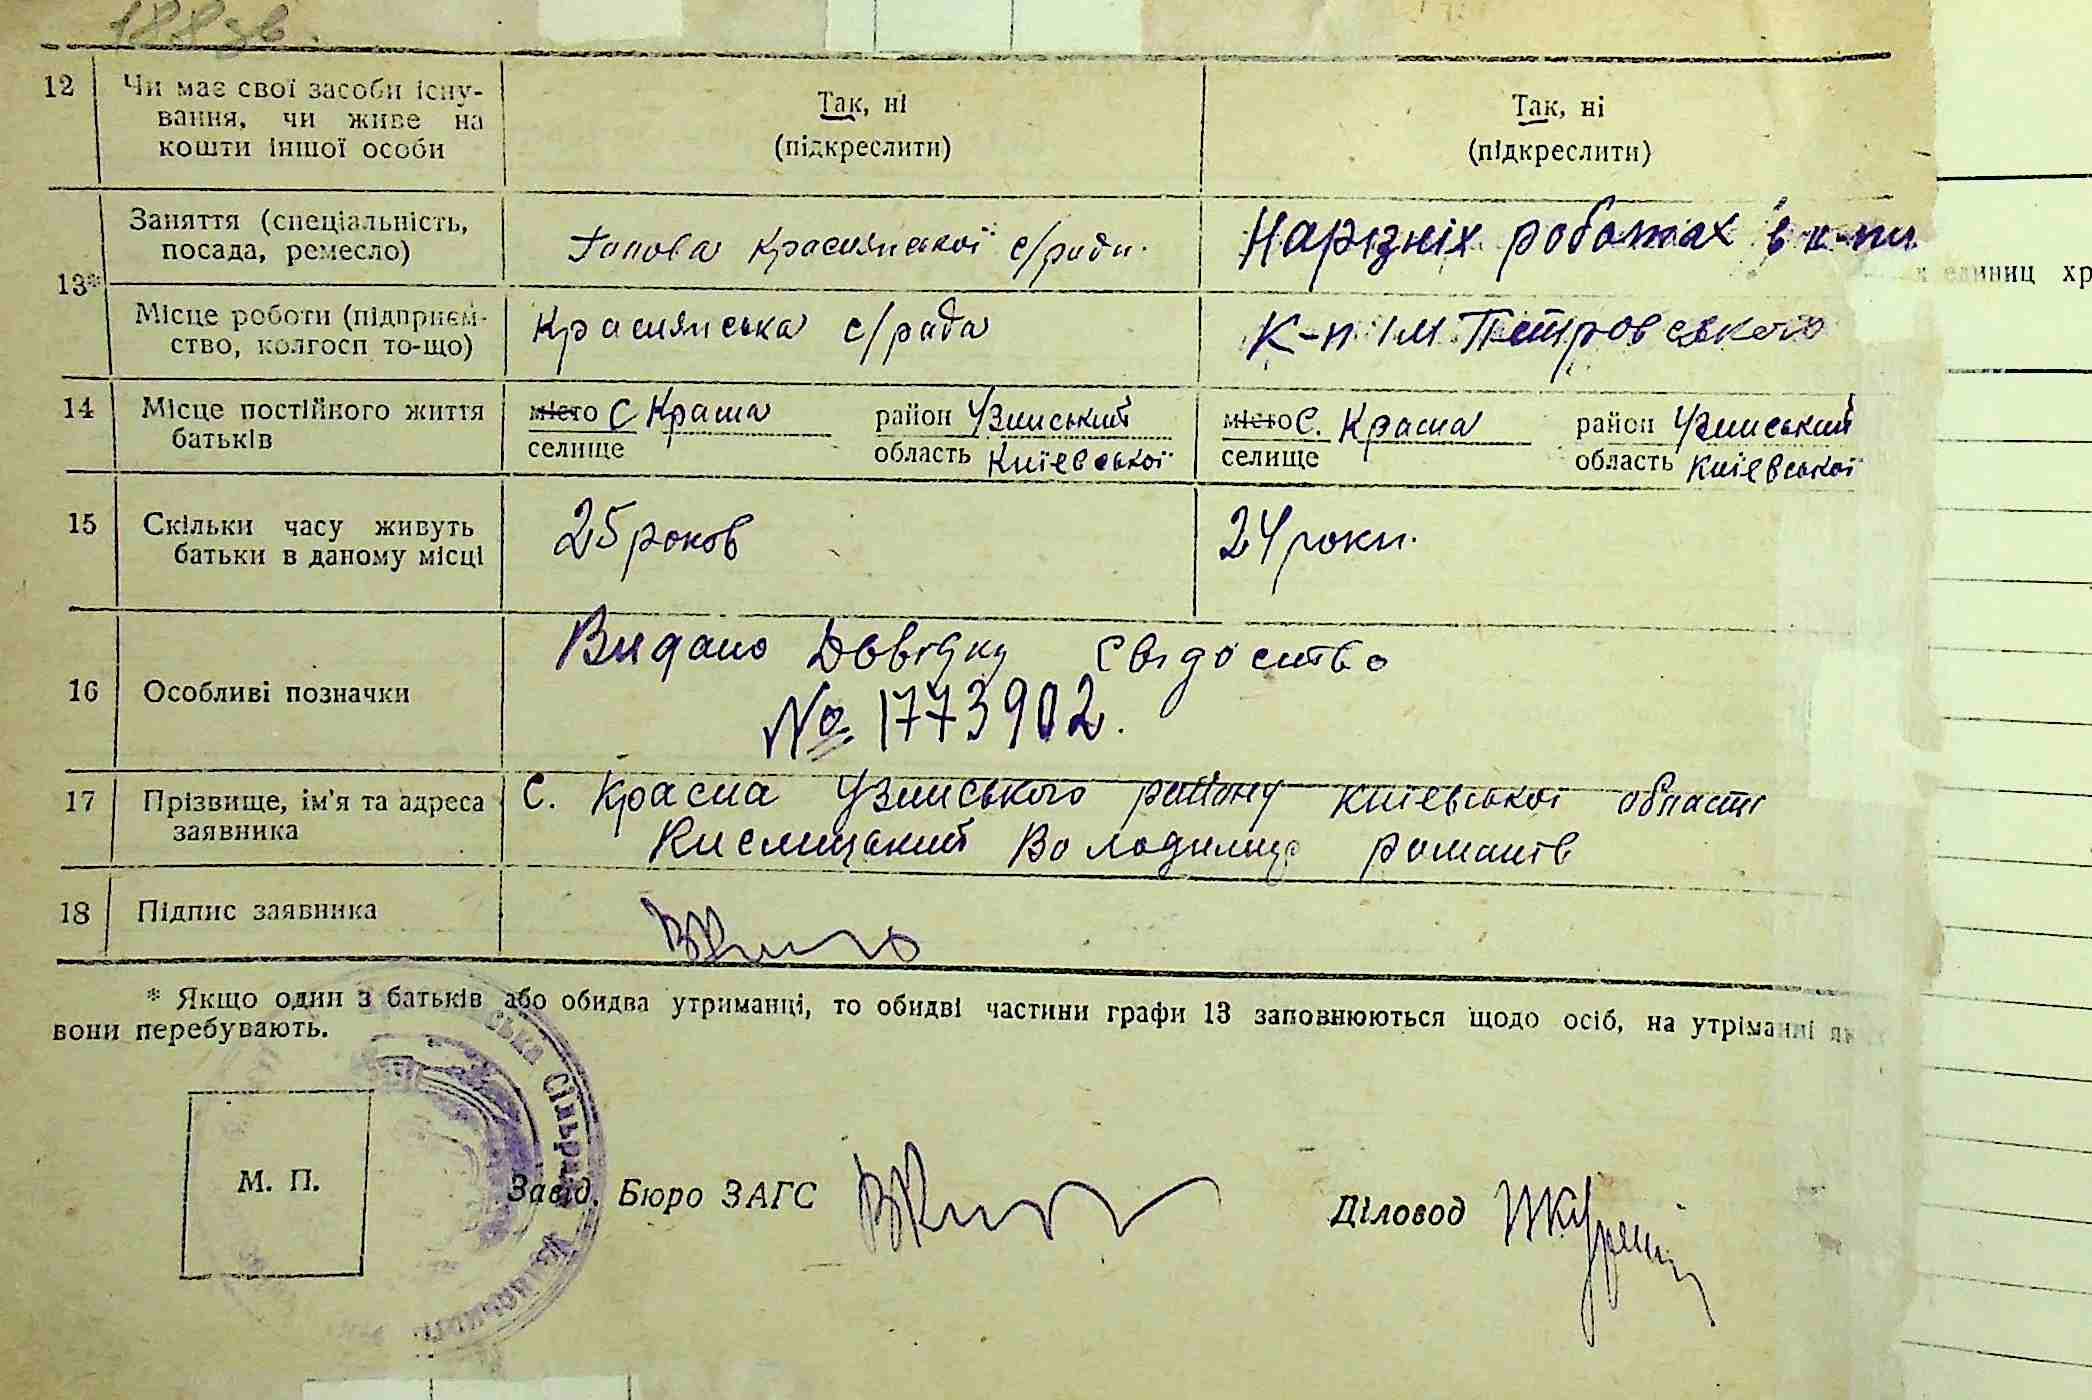 188 зв.
12 Чи має свої засоби існу-
вання, чи живе на
кошти іншої особи
Так, ні
(підкреслити)
Так, ні
(підкреслити)
13*
Заняття (спеціальність,
посада, ремесло)
Голова Краснянської с/ради.
На різніх роботах в к-пи
Місце роботи (підприєм-
ство, колгосп то-що)
Краснянська с/рада
К-п ім Петровського
14 Місце постійного життя
батьків
місто С Красна район Узинський
селище область Київської
місто С. Красна район Узинський
селище область Київської
15 Скільки часу живуть
батьки в даному місці
25 роков
24 роки.
16 Особливі позначки
Видано Довідку Свідоство
№ 1773902.
17 Прізвище, ім'я та адреса
заявника
С. Красна Узинського району Київської області
Кислицький Володимир Романів
18 Підпис заявника
* Якщо один з батьків або обидва утриманці, то обидві частини графи 13 заповнюються щодо осіб, на утріманні яких
вони перебувають.
М. П.
Завід. Бюро ЗАГС
Діловод
ська Сільрада Узинського
единиц хр